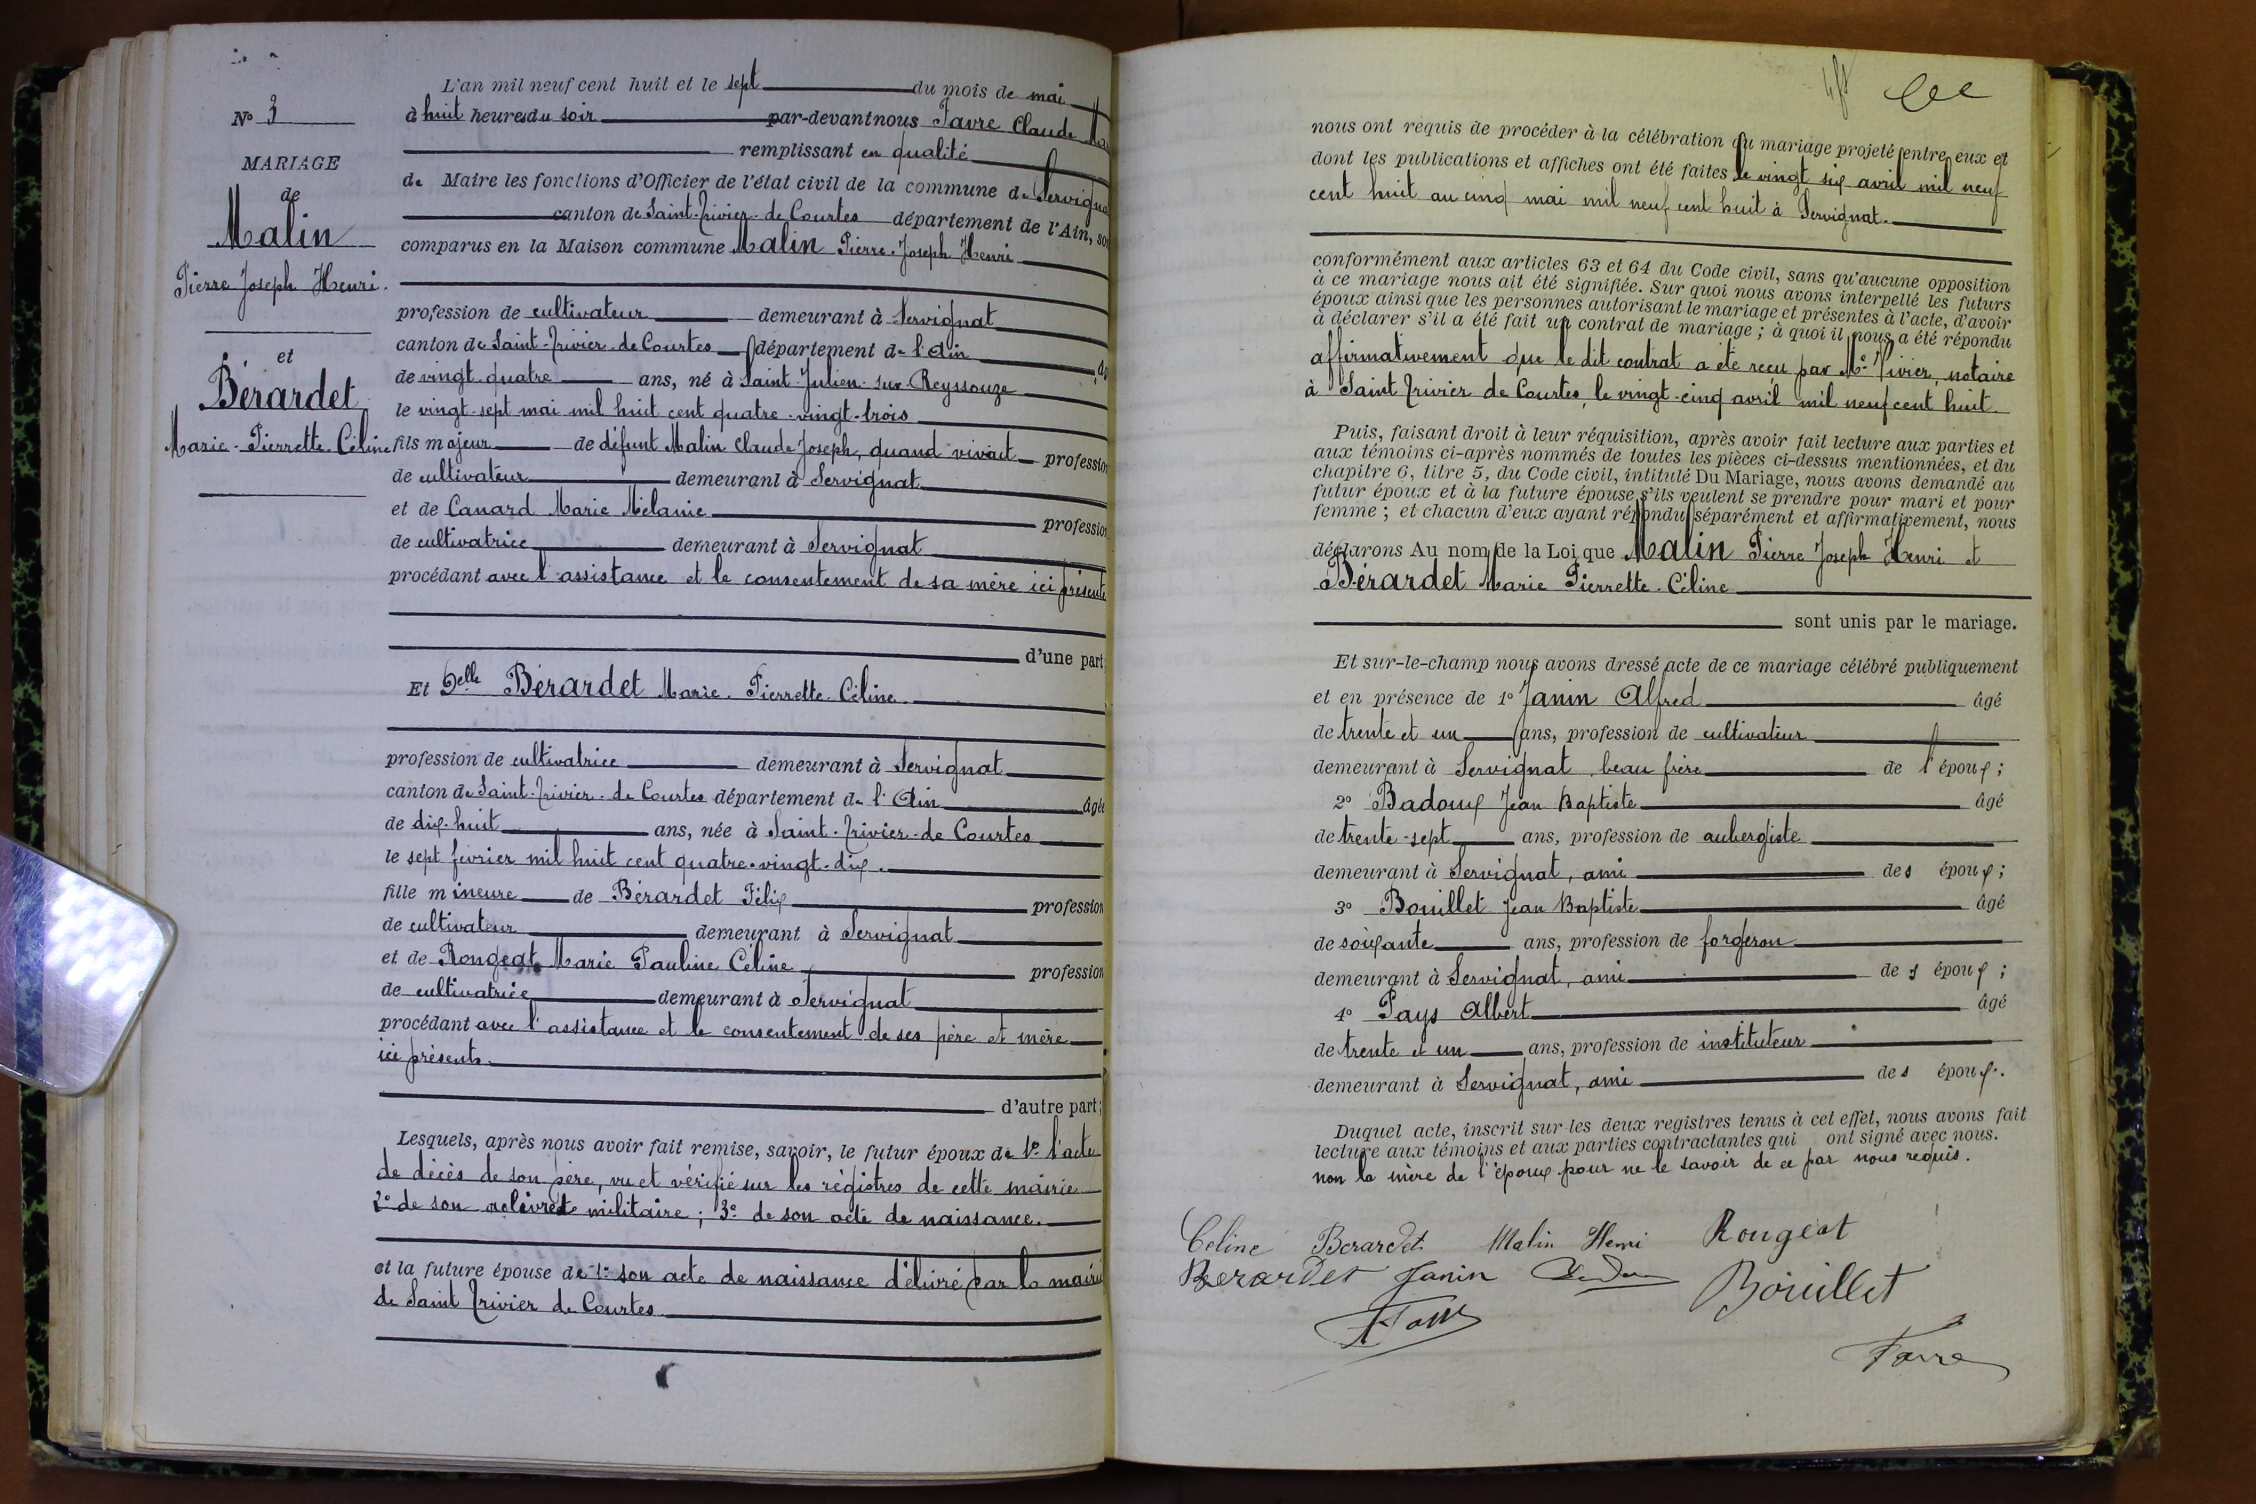 N° 3
MARIAGE
de
Malin
Pierre Joseph Henri.
et
Bérardet
Marie-Pierrette-Céline
L'an mil neuf cent huit et le sept du mois de mai
à huit heures du soir par-devant nous Favre Claude
remplissant en qualité
de Maire les fonctions d'Officier de l'état civil de la commune de Servignat
canton de Saint-Trivier-de-Courtes département de l'Ain, so
comparus en la Maison commune Malin Pierre-Joseph Henri
profession de cultivateur demeurant à Servignat
canton de Saint-Trivier-de-Courtes département de l'Ain
de vingt-quatre ans, né à Saint-Julien-sur-Reyssouze
le vingt-sept mai mil huit cent quatre-vingt-trois
fils majeur de défunt Malin Claude Joseph, quand vivait profession
de cultivateur demeurant à Servignat
et de Canard Marie Mélanie profession
de cultivatrice demeurant à Servignat
procédant avec l'assistance et le consentement de sa mère ici présente
d'une part
Et Delle Bérardet Marie-Pierrette-Céline
profession de cultivatrice demeurant à Servignat
canton de Saint-Trivier-de-Courtes département de l'Ain âgée
de dix-huit ans, née à Saint-Trivier-de-Courtes
le sept février mil huit cent quatre-vingt-dix.
fille mineure de Bérardet Félix profession
de cultivateur demeurant à Servignat
et de Rongeat Marie Pauline Céline profession
de cultivatrice demeurant à Servignat
procédant avec l'assistance et le consentement de ses père et mère
ici présents.
d'autre part;
Lesquels, après nous avoir fait remise, savoir, le futur époux de 1° l'acte
de décès de son père, vu et vérifié sur les régistres de cette mairie
2° de son livret militaire; 3° de son acte de naissance.
et la future épouse de 1° son acte de naissance délivré par la mairie
de Saint Trivier de Courtes
nous ont requis de procéder à la célébration du mariage projeté entre eux et
dont les publications et affiches ont été faites le vingt six avril mil neuf
cent huit au cinq mai mil neuf cent huit à Servignat.
conformément aux articles 63 et 64 du Code civil, sans qu'aucune opposition
à ce mariage nous ait été signifiée. Sur quoi nous avons interpellé les futurs
époux ainsi que les personnes autorisant le mariage et présentes à l'acte, d'avoir
à déclarer s'il a été fait un contrat de mariage; à quoi il nous a été répondu
affirmativement que le dit contrat a été reçu par Me Vivier, notaire
à Saint Trivier de Courtes, le vingt-cinq avril mil neuf cent huit.
Puis, faisant droit à leur réquisition, après avoir fait lecture aux parties et
aux témoins ci-après nommés de toutes les pièces ci-dessus mentionnées, et du
chapitre 6, titre 5, du Code civil, intitulé Du Mariage, nous avons demandé au
futur époux et à la future épouse s'ils veulent se prendre pour mari et pour
femme; et chacun d'eux ayant répondu séparément et affirmativement, nous
déclarons Au nom de la Loi que Malin Pierre Joseph Henri et
Bérardet Marie Pierrette-Céline
sont unis par le mariage.
Et sur-le-champ nous avons dressé acte de ce mariage célébré publiquement
et en présence de 1° Janin Alfred âgé
de trente et un ans, profession de cultivateur
demeurant à Servignat, beau frère de l'époux;
2° Badoux Jean Baptiste âgé
de trente-sept ans, profession de aubergiste
demeurant à Servignat, ami des époux;
3° Bouillet Jean Baptiste âgé
de soixante ans, profession de forgeron
demeurant à Servignat, ami des époux;
4° Pays Albert âgé
de trente et un ans, profession de instituteur
demeurant à Servignat, ami des époux.
Duquel acte, inscrit sur les deux registres tenus à cet effet, nous avons fait
lecture aux témoins et aux parties contractantes qui ont signé avec nous.
non la mère de l'époux pour ne le savoir de ce par nous requis.
Céline Berardet Malin Henri Rongeat
Berardet Janin Bouillet
Favre